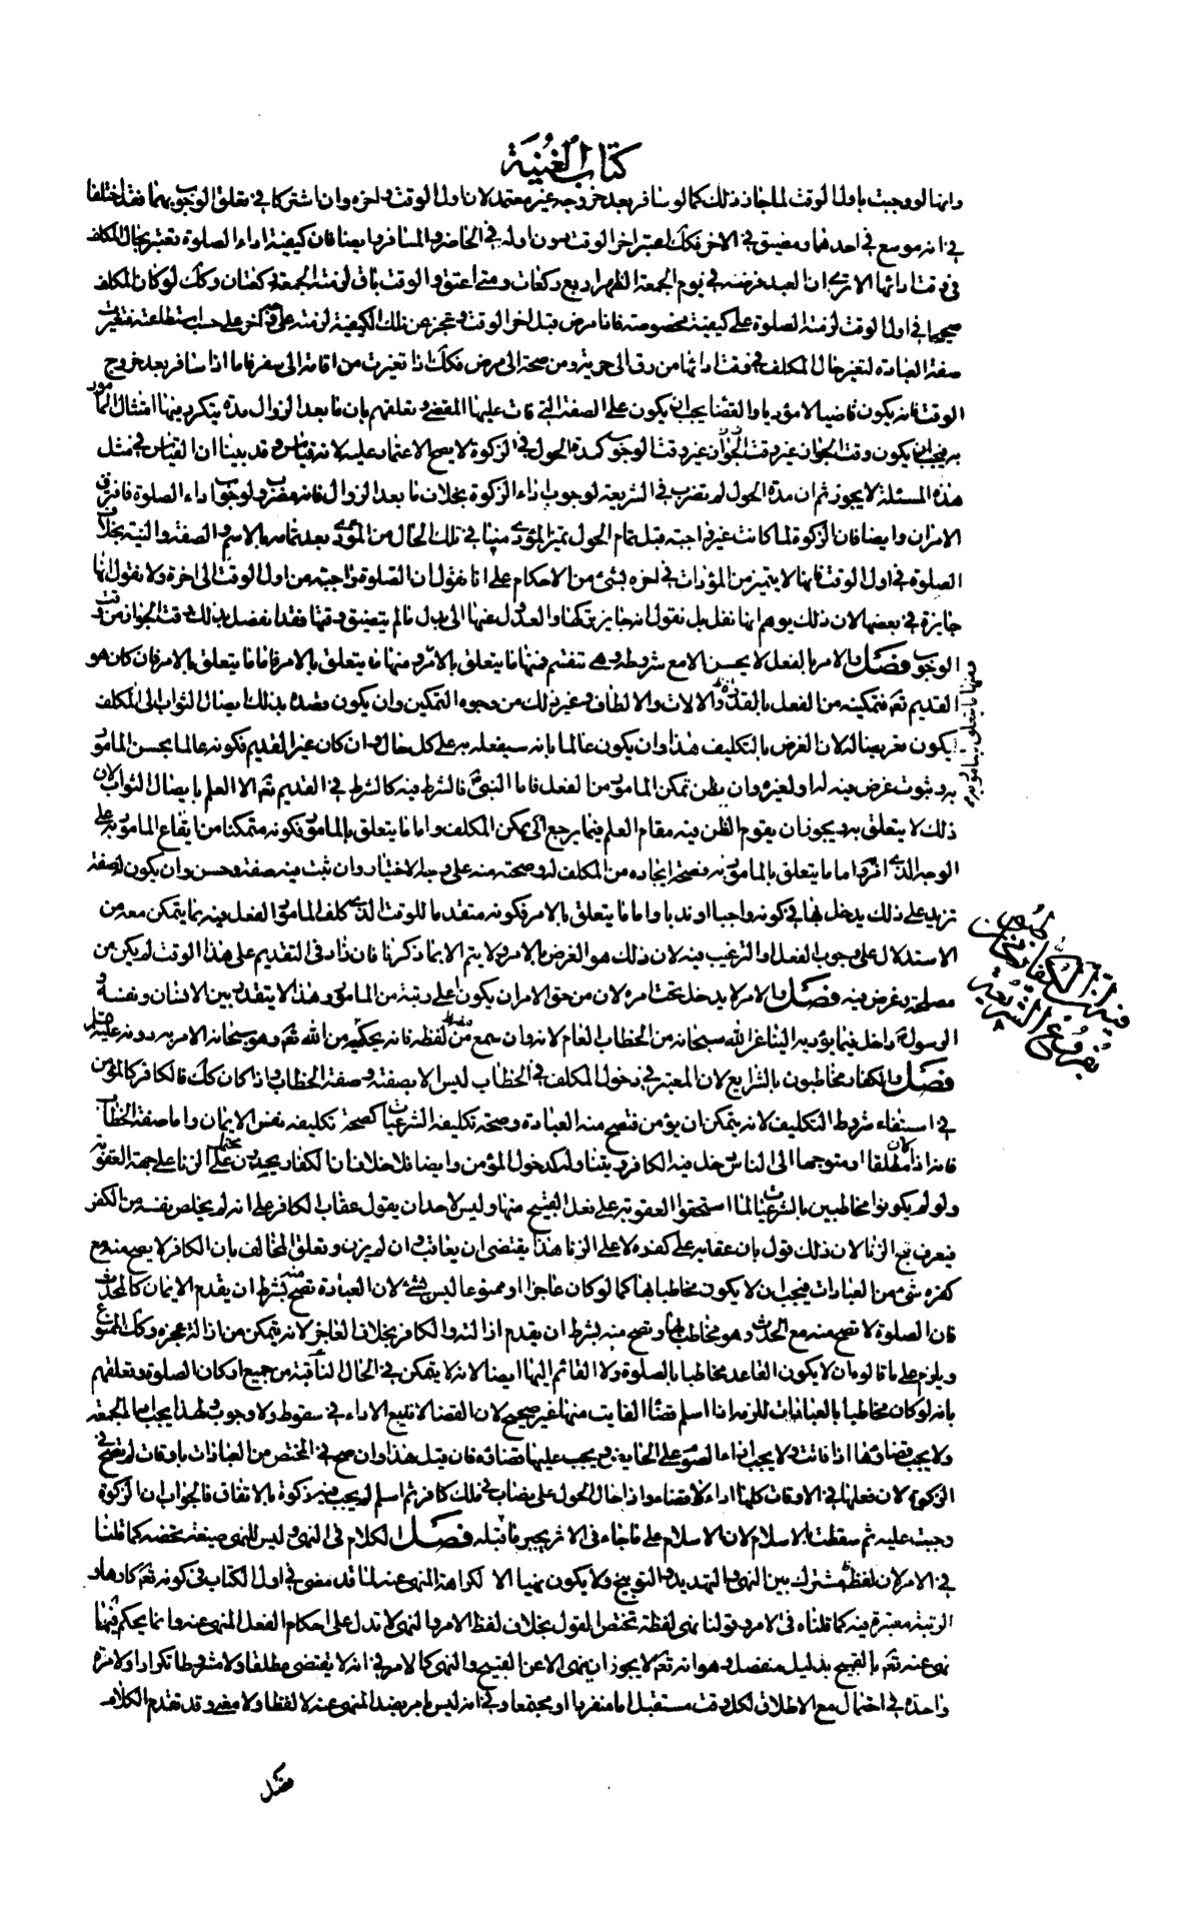 كتاب الغنية
وانها لو وجبت باول الوقت لما جاز ذلك كما لو سافر بعد خروجه غير معتمد لان اول الوقت واخره وان اشتركا في تعلق الوجوب بهما فقد اختلفا
في انه موسع في احدهما ومضيق في الاخر فكك اعتبر اخر الوقت دون اوله في الحاضر والمسافر وايضا فان كيفية اداء الصلوة تعتبر بحال المكلف
في وقت ادائها الا ترى ان العبد فرضه في يوم الجمعة الظهر اربع ركعات ومتى اعتق والوقت باق لزمته الجمعة ركعتان وكك لو كان المكلف
صحيحا في اول الوقت لزمته الصلوة على كيفية مخصوصة فاذا مرض قبل اخر الوقت وعجز عن تلك الكيفية لزمته على اخر على حسب استطاعته فتغيرت
صفة العبادة لتغير حال المكلف في وقت ادائها من رق الى حرية ومن صحة الى مرض فكك اذا تغيرت من اقامة الى سفر فاما اذا سافر بعد خروج
الوقت فانه يكون قاضيا لا مؤديا والقضا يجب ان يكون على الصفة التي فات عليها المقضى وتعلقهم بان ما بعد الزوال مدة يتكرر فيها امتثال المامور
به فيجب ان يكون وقت الجواز غير وقت الوجوب كمدة الحول في الزكوة لا يصح الاعتماد عليه لانه قياس وقد بينا ان القياس في مثل
هذه المسئلة لا يجوز ثم ان مدة الحول لم تضرب في الشريعة لوجوب اداء الزكوة بخلاف ما بعد الزوال فانه مضروب لوجوب اداء الصلوة فافترق
الامران وايضا فان الزكوة لما كانت غير واجبة قبل تمام الحول تميز المؤدى منها في تلك الحال من المؤدى بعد تمامه بالاسم والصفة والنية بخلاف
الصلوة في اول الوقت فانها لا يتميز من المؤداة في اخره بشئ من الاحكام على انا نقول ان الصلوة واجبة من اول الوقت الى اخره ولا نقول انها
جايزة في بعضها لان ذلك يوهم انها نفل بل نقول انه جايز تركها والعدول عنها الى بدل ما لم يتضيق وقتها فقد انفصل بذلك وقت الجواز من وقت
الوجوب فصل والامر بالفعل لا يحسن الا مع شروط وهي تنقسم فمنها ما يتعلق بالامر ومنها ما يتعلق بالامر فاما ما يتعلق بالامر فان كان هو
ومنها ما يتعلق بالمامور به
القديم تعالى فتمكينه من الفعل بالقدرة والالات والالطاف وغير ذلك من وجوه التمكين وان يكون قصده بذلك ايصال الثواب الى المكلف
ليكون تعريضا له لان الغرض بالتكليف هذا وان يكون عالما بانه سيفعله به على كل حال وان كان غير القديم فكونه عالما بحسن المامور
به وثبوت غرض فيه له او لغيره وان يظن تمكن المامور من الفعل فاما النبي فالشرط فيه كالشرط في القديم تعالى الا العلم بايصال الثواب لان
ذلك لا يتعلق به ويجوز ان يقوم الظن فيه مقام العلم فيما يرجع الى تمكن المكلف واما ما يتعلق بالمامور فكونه متمكنا من ايقاع المامور به على
الوجه الذي امر به اما ما يتعلق بالمامور به فصحة ايجاده من المكلف له وصحته منه على وجه الاختيار وان ثبت فيه صفة وحسن وان يكون له صفة
تزيد على ذلك يدخل بها في كونه واجبا او ندبا واما ما يتعلق بالامر فكونه متقدما للوقت الذي كلف المامور الفعل فيه بما يتمكن معه من
الاستدلال على وجوب الفعل والترغيب فيه لان ذلك هو الغرض بالامر ولا يتم الا بما ذكرنا فان زاد في التقديم على هذا الوقت لم يكن من
مصلحة وغرض فيه فصل والامر لا يدخل تحت امره لان من حق الامر ان يكون اعلى رتبة من المامور وهذا لا يتقدر بين الانسان ونفسه و
الرسول داخل فيما يؤديه الينا عن الله سبحانه من الخطاب العام لانه وان سمع من لفظه فانه يحكيه من الله تعالى وهو سبحانه الامر به دونه عليه
فصل والكفار مخاطبون بالشرايع لان المعتبر في دخول المكلف في الخطاب ليس الا بصفته وصفة الخطاب واذا كان كك فالكافر كالمؤمن
في استيفاء شروط التكليف لانه يتمكن ان يؤمن فتصح منه العبادة وصحة تكليفه الشرعيات كصحة تكليفه نفس الايمان واما صفة الخطاب
فانه اذا كان مطلقا او متوجها الى الناس دخل فيه الكافر ويتناوله كدخول المؤمن وايضا فلا خلاف ان الكفار يحدون على الزنا على جهة العقوبة
ولو لم يكونوا مخاطبين بالشرعيات لما استحقوا العقوبة على فعل القبيح منها وليس لاحد ان يقول عقاب الكافر على انه لم يخلص نفسه من الكفر
فيعرف قبح الزنا لان ذلك قول بان عقابه على كفره لا على الزنا وهذا يقتضى ان يعاقب وان لم يزن وتعلق المخالف بان الكافر لا يصح منه مع
كفره شئ من العبادات فيجب ان لا يكون مخاطبا بها كما لو كان عاجزا او ممنوعا ليس بشئ لان العبادة تصح منه بشرط ان يقدم الايمان كالمحدث
فان الصلوة لا تصح منه مع الحدث وهو مخاطب بها وتصح منه بشرط ان يقدم ازالته والكافر بخلاف العاجز لانه يتمكن من ازالة عجزه وكك الممنوع
ويلزم على ما قالوه ان لا يكون القاعد مخاطبا بالصلوة ولا القائم اليها ايضا لانه لا يتمكن في الحال الثانية من جميع اركان الصلوة وتعلقهم
بانه لو كان مخاطبا بالعبادات للزمه اذا اسلم قضاء الفايت منها غير صحيح لان القضا لا يتبع الاداء في سقوط ولا وجوب ولهذا يجب اداء الجمعة
ولا يجب قضاؤها اذا فاتت ولا يجب اداء الصوم على الحايض ويجب عليها قضاؤه فان قيل هذا وان صح في المختص من العبادات باوقات لم يصح في
الزكوة لان فعلها في الاوقات كلها اداء لا قضاء واذا حال الحول على نصاب في ملك كافر ثم اسلم لم يجب فيه زكوة بالاتفاق فالجواب ان الزكوة
وجبت عليه ثم سقطت بالاسلام لان الاسلام على ما جاء في الاثر يجب ما قبله فصل الكلام في النهى وليس للنهى صيغة تخصه كما قلنا
في الامر لان لفظه مشترك بين النهى والتهديد والتوبيخ ولا يكون نهيا الا لكراهة المنهى عنه لما قد مضى في اول الكتاب في كونه تعالى كارها و
الرتبة معتبرة فيه كما قلناه في الامر وقولنا نهى لفظة تختص القول بخلاف لفظ الامر والنهى لا تدل على احكام الفعل المنهى عنه وانما يحكم فيما
نهى عنه تعالى بالقبيح بدليل منفصل وهو انه تعالى لا يجوز ان ينهى الا عن القبيح والنهى كالامر في انه لا يقتضى مطلقا ولا مشروطا تكرارا ولا مرة
واحدة في احتمال مع الاطلاق لكل وقت مستقبل اما منفردا او مجتمعا وفي انه ليس بامر بضد المنهى عنه لا لفظا ولا معنى وقد تقدم الكلام
في ان الكفار مخاطبون
بفروع الشريعة
فصل